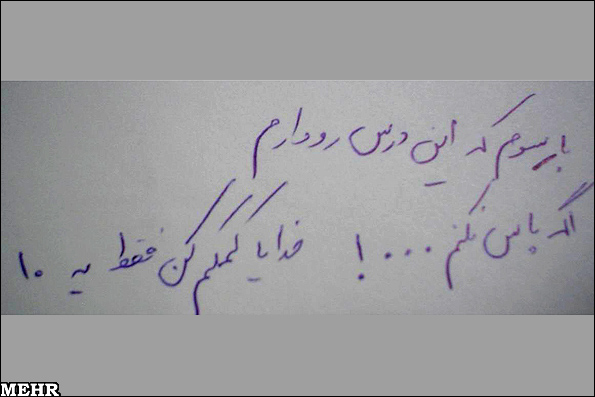 بار سوم که این درس رو دارم
اگه پاس نکنم ...! خدایا کمکم کن فقط یه ۱۰
MEHR